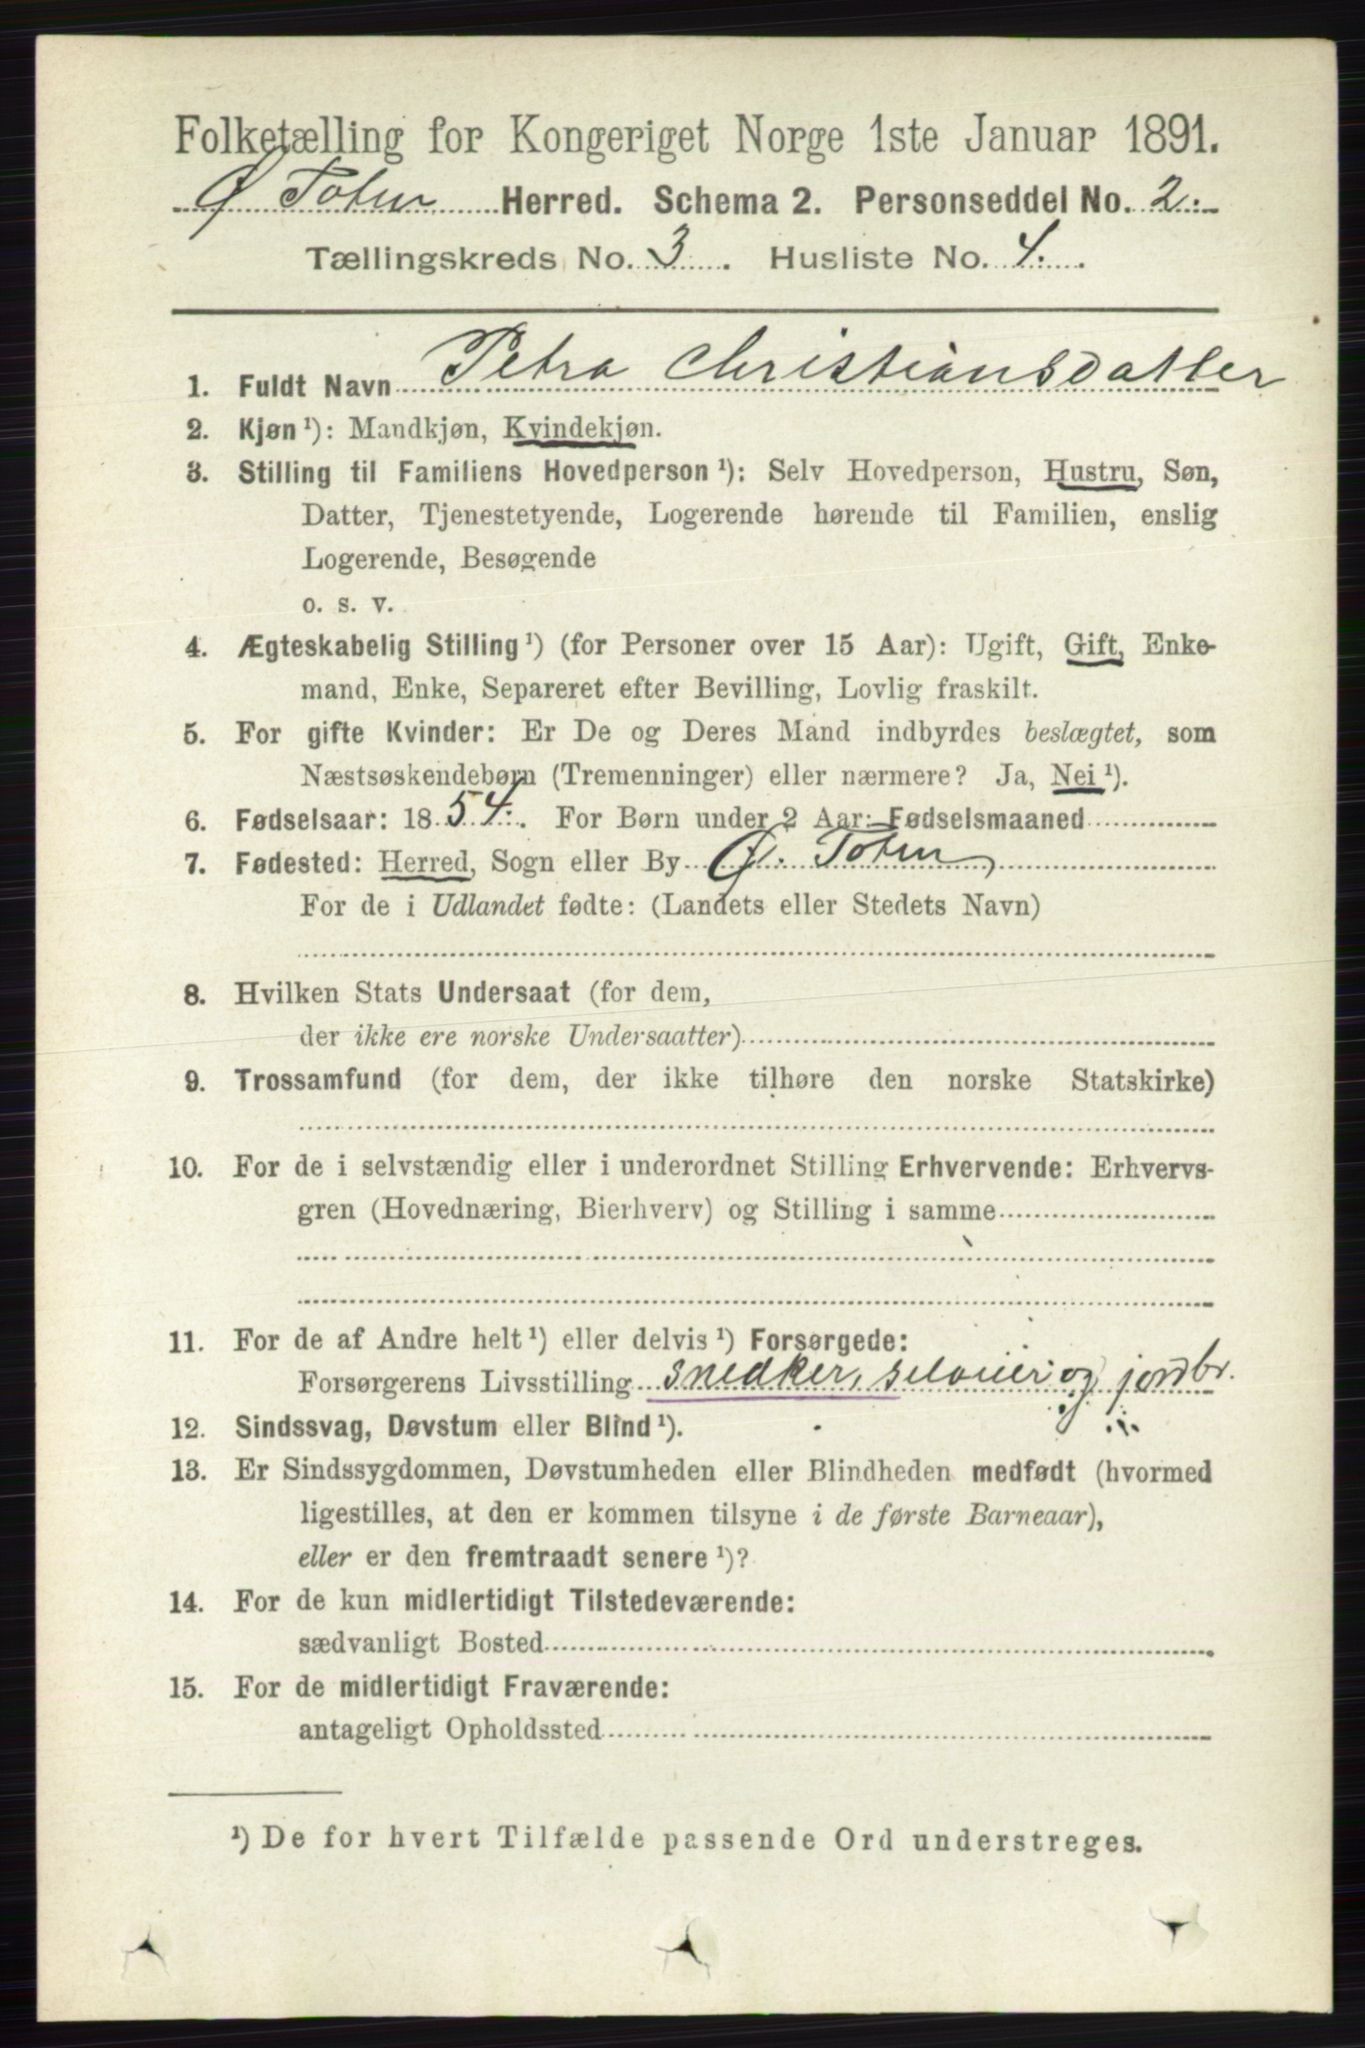 Folketælling for Kongeriget Norge 1ste Januar 1891.
Ø Toten Herred. Schema 2. Personseddel No. 2.
Tællingskreds No. 3. Husliste No. 4.
1. Fuldt Navn Petra Christiansdatter
2. Kjøn ¹): Mandkjøn, Kvindekjøn.
3. Stilling til Familiens Hovedperson ¹): Selv Hovedperson, Hustru, Søn,
Datter, Tjenestetyende, Logerende hørende til Familien, enslig
Logerende, Besøgende
o. s. v.
4. Ægteskabelig Stilling ¹) (for Personer over 15 Aar): Ugift, Gift, Enke-
mand, Enke, Separeret efter Bevilling, Lovlig fraskilt.
5. For gifte Kvinder: Er De og Deres Mand indbyrdes beslægtet, som
Næstsøskendebørn (Tremenninger) eller nærmere? Ja, Nei ¹).
6. Fødselsaar: 1854. For Børn under 2 Aar: Fødselsmaaned
7. Fødested: Herred, Sogn eller By Ø. Toten
For de i Udlandet fødte: (Landets eller Stedets Navn)
8. Hvilken Stats Undersaat (for dem,
der ikke ere norske Undersaatter)
9. Trossamfund (for dem, der ikke tilhøre den norske Statskirke)
10. For de i selvstændig eller i underordnet Stilling Erhvervende: Erhvervs-
gren (Hovednæring, Bierhverv) og Stilling i samme
11. For de af Andre helt ¹) eller delvis ¹) Forsørgede:
Forsørgerens Livsstilling snedker, seloier og jordbr.
12. Sindssvag, Døvstum eller Blind ¹).
13. Er Sindssygdommen, Døvstumheden eller Blindheden medfødt (hvormed
ligestilles, at den er kommen tilsyne i de første Barneaar),
eller er den fremtraadt senere ¹)?
14. For de kun midlertidigt Tilstedeværende:
sædvanligt Bosted
15. For de midlertidigt Fraværende:
antageligt Opholdssted
¹) De for hvert Tilfælde passende Ord understreges.